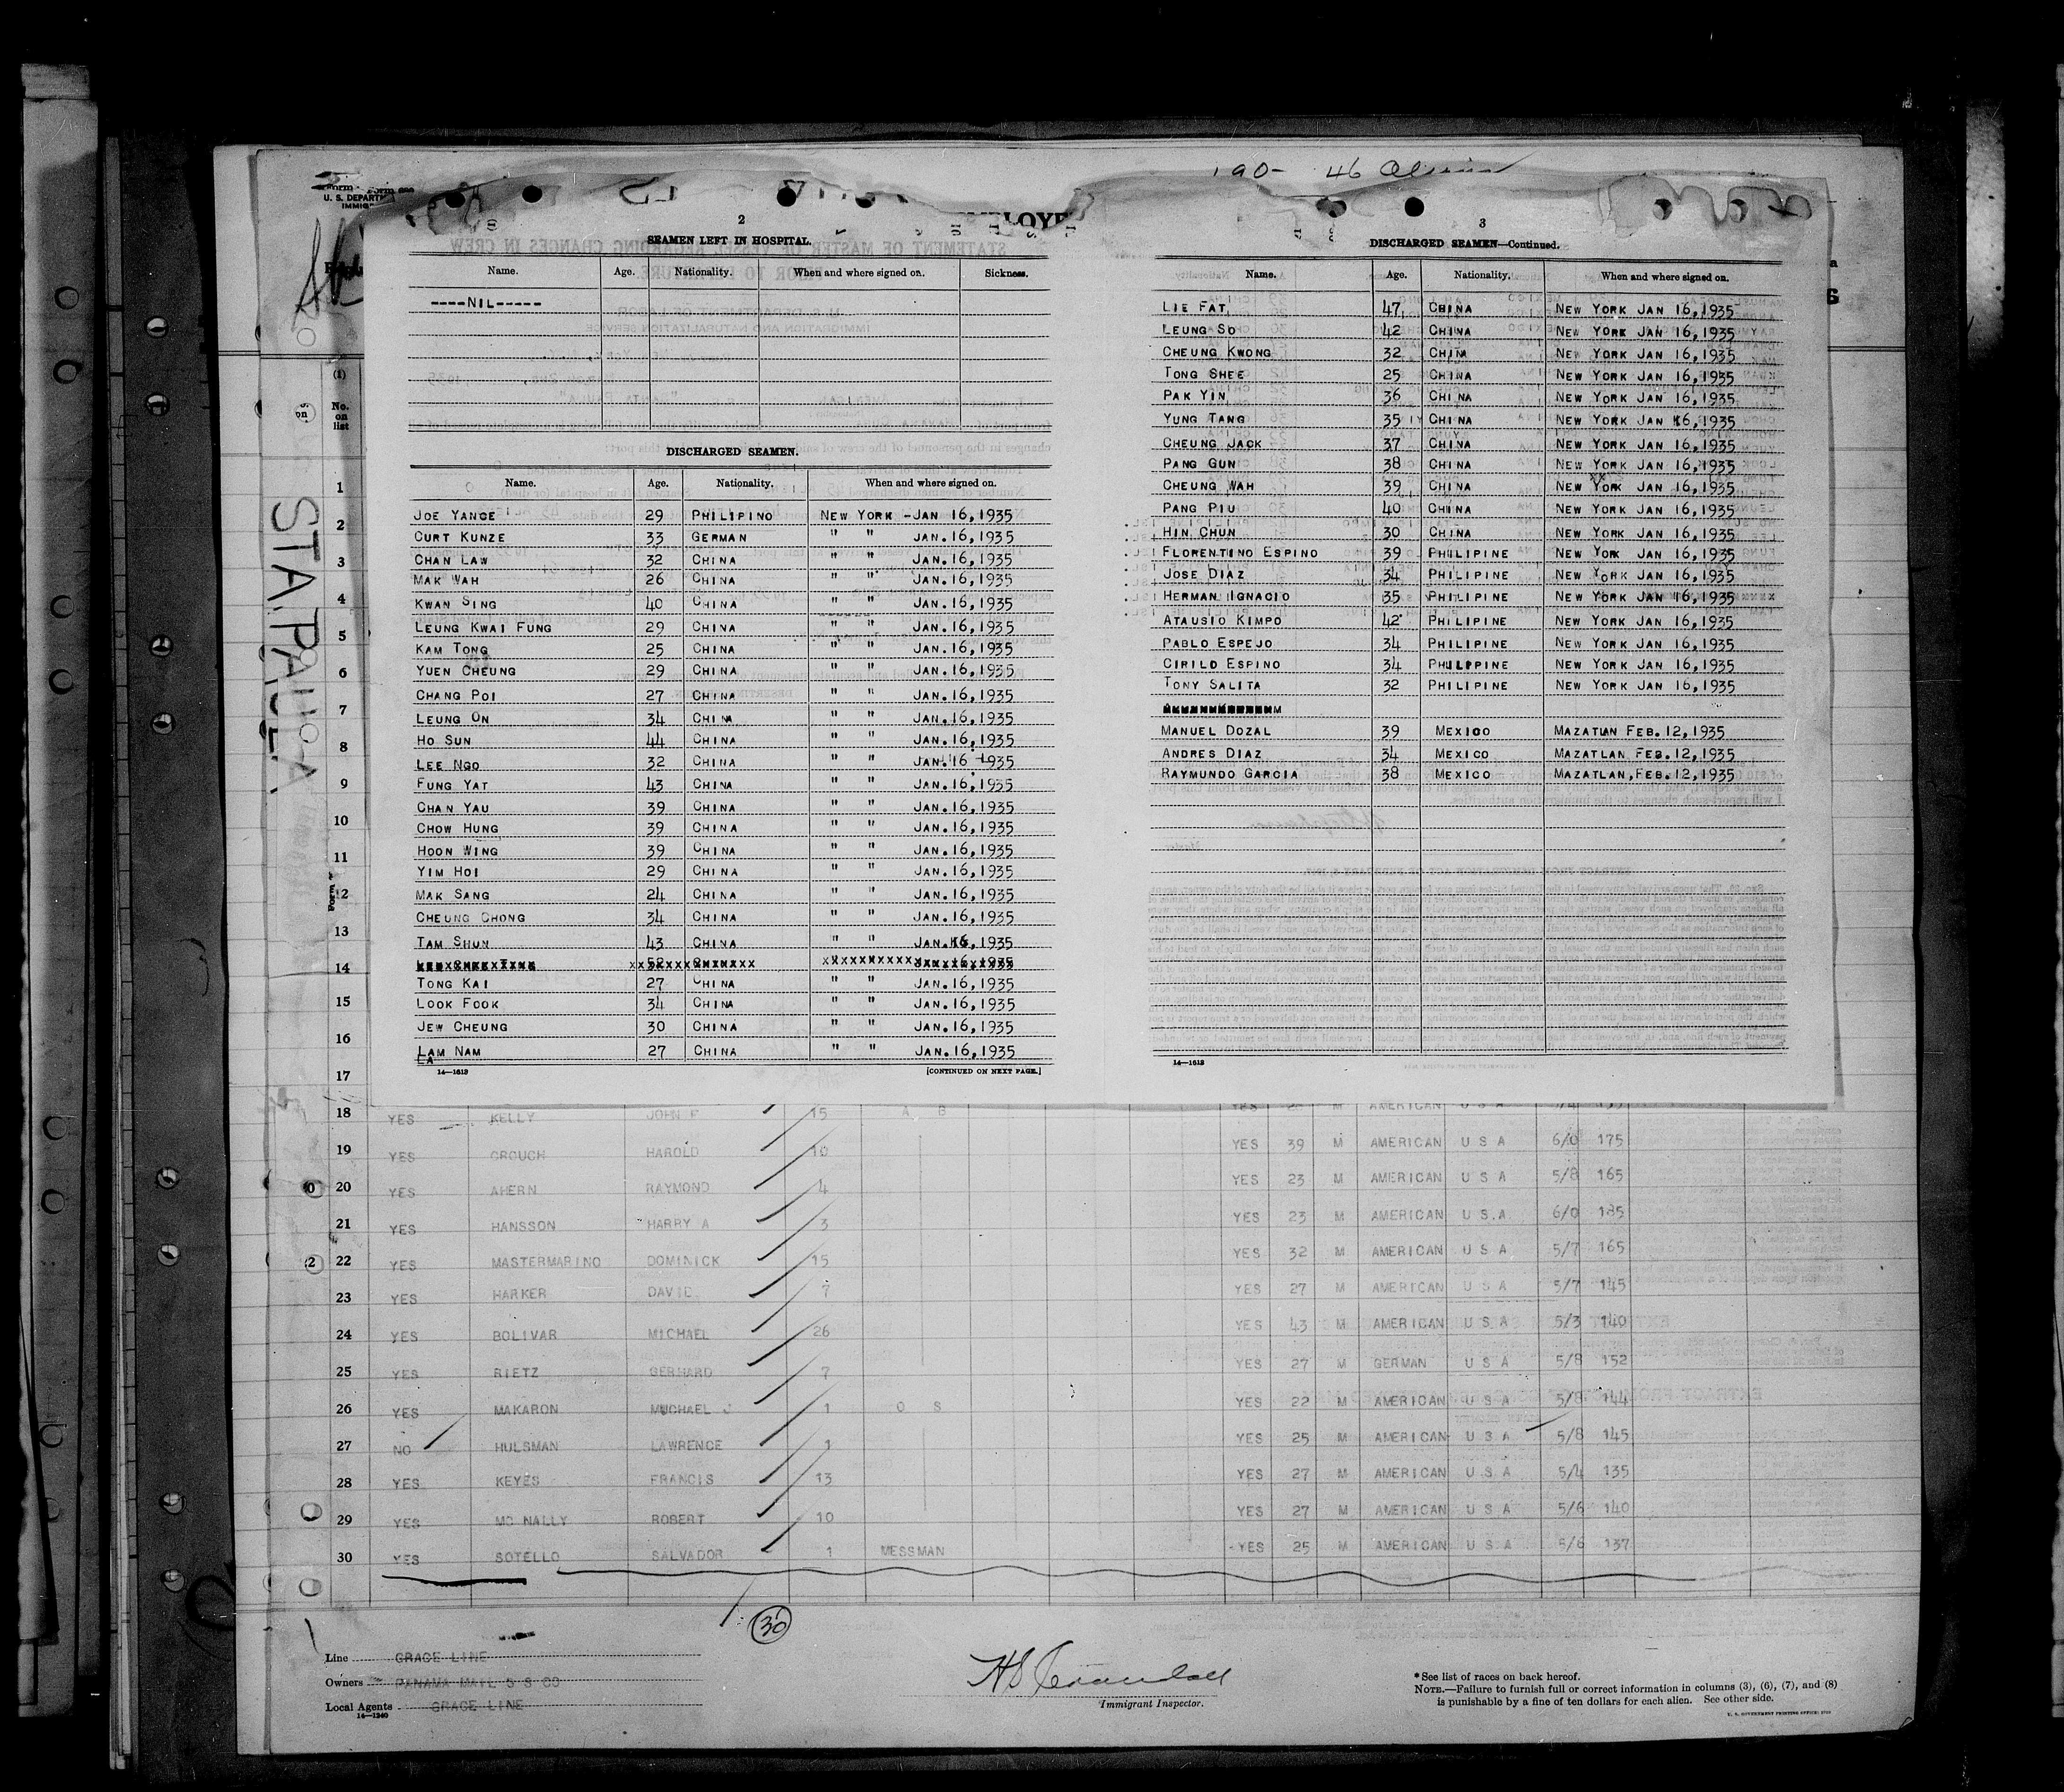 190- 46
U. S. DEPART
IMMIG
STA. PAULA
2
SEAMEN LEFT IN HOSPITAL.
Name. Age. Nationality. When and where signed on. Sickness.
----NIL-----
DISCHARGED SEAMEN.
Name. Age. Nationality. When and where signed on.
JOE YANGE 29 PHILIPINO NEW YORK -JAN 16,1935
CURT KUNZE 33 GERMAN " " JAN.16,1935
CHAN LAW 32 CHINA " " JAN.16,1935
MAK WAH 26 CHINA " " JAN.16,1935
KWAN SING 40 CHINA " " JAN.16,1935
LEUNG KWAI FUNG 29 CHINA " " JAN.16,1935
KAM TONG 25 CHINA " " JAN.16,1935
YUEN CHEUNG 29 CHINA " " JAN.16,1935
CHANG POI 27 CHINA " " JAN.16,1935
LEUNG ON 34 CHINA " " JAN.16,1935
HO SUN 44 CHINA " " JAN.16,1935
LEE NGO 32 CHINA " " JAN.16 1935
FUNG YAT 43 CHINA " " JAN.16,1935
CHAN YAU 39 CHINA " " JAN.16,1935
CHOW HUNG 39 CHINA " " JAN.16,1935
HOON WING 39 CHINA " " JAN.16,1935
YIM HOI 29 CHINA " " JAN.16,1935
MAK SANG 24 CHINA " " JAN.16,1935
CHEUNG CHONG 34 CHINA " " JAN.16,1935
TAM SHUN 43 CHINA " " JAN.16,1935
TONG KAI 27 CHINA " " JAN.16,1935
LOOK FOOK 34 CHINA " " JAN.16,1935
JEW CHEUNG 30 CHINA " " JAN.16,1935
LAM NAM 27 CHINA " " JAN.16,1935
LA
14—1613 [CONTINUED ON NEXT PAGE.]
3
DISCHARGED SEAMEN—Continued.
Name. Age. Nationality. When and where signed on.
LIE FAT 47 CHINA NEW YORK JAN 16,1935
LEUNG SO 42 CHINA NEW YORK JAN 16,1935
CHEUNG KWONG 32 CHINA NEW YORK JAN 16,1935
TONG SHEE 25 CHINA NEW YORK JAN 16,1935
PAK YIN 36 CHINA NEW YORK JAN 16,1935
YUNG TANG 35 CHINA NEW YORK JAN 16,1935
CHEUNG JACK 37 CHINA NEW YORK JAN 16,1935
PANG GUN 38 CHINA NEW YORK JAN 16,1935
CHEUNG WAH 39 CHINA NEW YORK JAN 16,1935
PANG PIU 40 CHINA NEW YORK JAN 16,1935
HIN CHUN 30 CHINA NEW YORK JAN 16,1935
FLORENTINO ESPINO 39 PHILIPINE NEW YORK JAN 16,1935
JOSE DIAZ 34 PHILIPINE NEW YORK JAN 16,1935
HERMAN IGNACIO 35 PHILIPINE NEW YORK JAN 16,1935
ATAUSIO KIMPO 42 PHILIPINE NEW YORK JAN 16,1935
PABLO ESPEJO 34 PHILIPINE NEW YORK JAN 16,1935
CIRILO ESPINO 34 PHILIPINE NEW YORK JAN 16,1935
TONY SALITA 32 PHILIPINE NEW YORK JAN 16,1935
MANUEL DOZAL 39 MEXICO MAZATLAN FEB.12,1935
ANDRES DIAZ 34 MEXICO MAZATLAN FEB.12,1935
RAYMUNDO GARCIA 38 MEXICO MAZATLAN,FEB.12,1935
14—1613
(1)
No.
on
list
1
2
3
4
5
6
7
8
9
10
11
12
13
14
15
16
17
18 YES KELLY JOHN F 15 A B YES M AMERICAN U S A
19 YES CROUCH HAROLD 10 YES 39 M AMERICAN U S A 6/0 175
20 YES AHERN RAYMOND 4 YES 23 M AMERICAN U S A 5/8 165
21 YES HANSSON HARRY A 3 YES 23 M AMERICAN U S.A. 6/0 185
22 YES MASTERMARINO DOMINICK 15 YES 32 M AMERICAN U S A 5/7 165
23 YES HARKER DAVID 7 YES 27 M AMERICAN U S A 5/7 145
24 YES BOLIVAR MICHAEL 26 YES 43 M AMERICAN U S A 5/3 140
25 YES RIETZ GERHARD 7 YES 27 M GERMAN U S A 5/8 152
26 YES MAKARON MICHAEL J 1 O S YES 22 M AMERICAN U S A 5/8 144
27 NO HULSMAN LAWRENCE 1 YES 25 M AMERICAN U S A 5/8 145
28 YES KEYES FRANCIS 13 YES 27 M AMERICAN U S A 5/4 135
29 YES MC NALLY ROBERT 10 YES 27 M AMERICAN U S A 5/6 140
30 YES SOTELLO SALVADOR 1 MESSMAN YES 25 M AMERICAN U S A 5/6 137
30
Line GRACE LINE
Owners PANAMA MAIL S S CO
Local Agents GRACE LINE
14—1240
H S Crandall
Immigrant Inspector.
*See list of races on back hereof.
NOTE.—Failure to furnish full or correct information in columns (3), (6), (7), and (8)
is punishable by a fine of ten dollars for each alien. See other side.
U. S. GOVERNMENT PRINTING OFFICE: